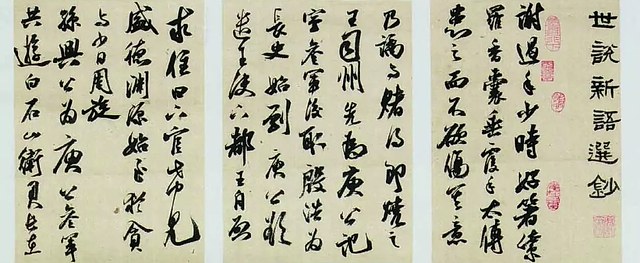 世說新語選鈔
謝遏年少時好著紫
羅香囊垂覆手太傅
患之而不欲傷其意
乃譎與賭得即燒之
王司州先為庾公記
室參軍後取殷浩為
長史始到庾公欲
遣王使下都王自啟
求住曰下官希見
盛德淵源始至猶貪
與少日周旋
孫興公為庾公參軍
共遊白石山衛君長在